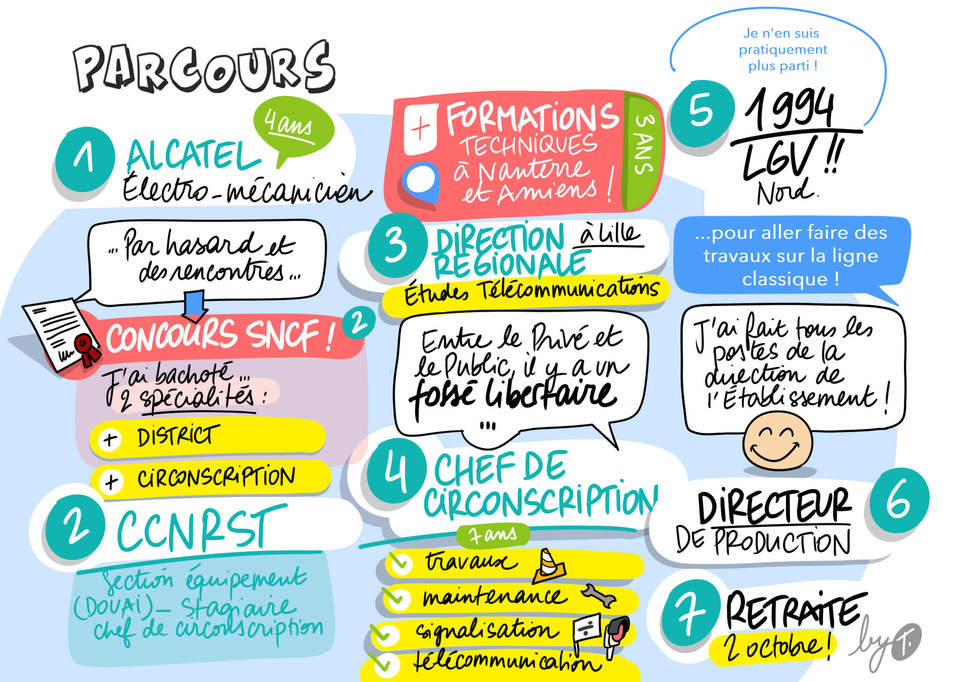 PARCOURS
4 ans
1
ALCATEL
Électro-mécanicien
... Par hasard et
des rencontres ...
CONCOURS SNCF !
2
J'ai bachoté ...
2 spécialités :
+ DISTRICT
+ CIRCONSCRIPTION
2
CCNRST
Section équipement
(DOUAI) – Stagiaire
chef de circonscription
+ FORMATIONS
TECHNIQUES
à Nanterre
et Amiens !
3 ANS
3
DIRECTION à Lille
RÉGIONALE
Études Télécommunications
Entre le Privé et
le Public, il y a un
fossé libertaire
...
4
CHEF DE
CIRCONSCRIPTION
7 ans
travaux
maintenance
signalisation
télécommunication
Je n'en suis
pratiquement
plus parti !
5
1994
LGV !!
Nord.
...pour aller faire des
travaux sur la ligne
classique !
J'ai fait tous les
postes de la
direction de
l'Établissement !
DIRECTEUR
DE PRODUCTION
6
7
RETRAITE
2 octobre !
by T.